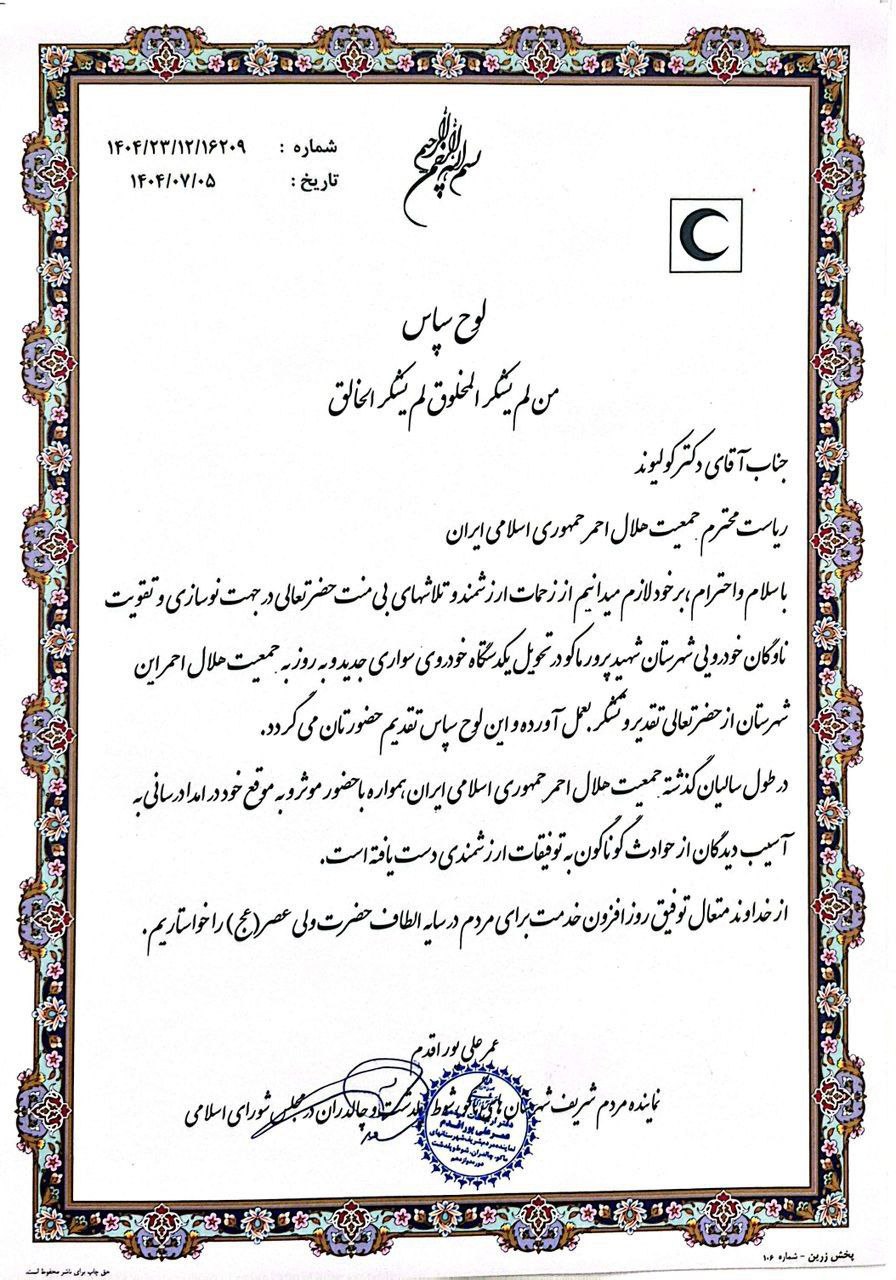 بسم الله الرحمن الرحیم
شماره : ۱۴۰۴/۲۳/۱۲/۱۶۲۰۹
تاریخ : ۱۴۰۴/۰۷/۰۵
لوح سپاس
من لم یشکر المخلوق لم یشکر الخالق
جناب آقای دکتر کولیوند
ریاست محترم جمعیت هلال احمر جمهوری اسلامی ایران
با سلام و احترام ،بر خود لازم میدانیم از زحمات ارزشمند و تلاشهای بی منت حضرتعالی در جهت نوسازی و تقویت
ناوگان خودرویی شهرستان شهید پرور ماکو در تحویل یکدستگاه خودروی سواری جدید و به روز به جمعیت هلال احمر این
شهرستان از حضرتعالی تقدیر و تشکر بعمل آورده و این لوح سپاس تقدیم حضورتان می گردد.
در طول سالیان گذشته جمعیت هلال احمر جمهوری اسلامی ایران همواره با حضور موثر و به موقع خود در امدادرسانی به
آسیب دیدگان از حوادث گوناگون به توفیقات ارزشمندی دست یافته است.
از خداوند متعال توفیق روز افزون خدمت برای مردم در سایه الطاف حضرت ولی عصر(عج) را خواستاریم.
عمر علی پور اقدم
نماینده مردم شریف شهرستان های ماکو، شوط، پلدشت و چالدران در مجلس شورای اسلامی
عمر علی پور اقدم
نماینده مردم شریف شهرستانهای
ماکو، چالدران، شوط و پلدشت
پخش زرین - شماره ۱۰۶
حق چاپ برای ناشر محفوظ است.